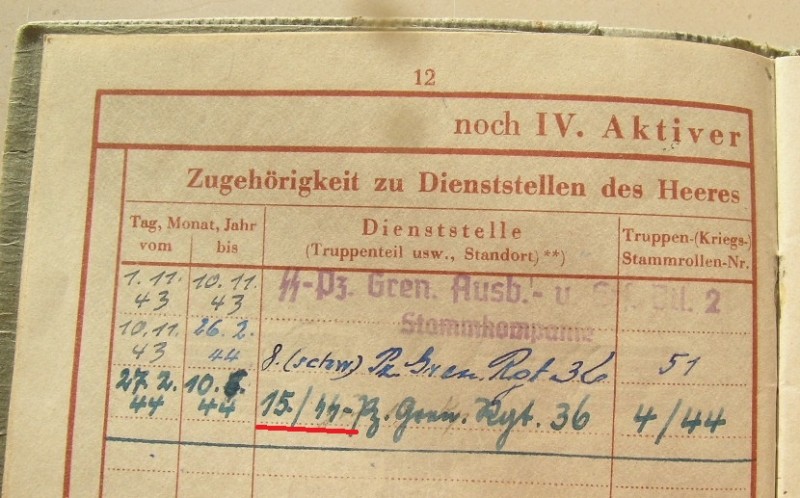 12
noch IV. Aktiver
Zugehörigkeit zu Dienststellen des Heeres
Tag, Monat, Jahr
vom bis
Dienststelle
(Truppenteil usw., Standort)**)
Truppen-(Kriegs-)
Stammrollen-Nr.
1.11. 43 10.11. 43 ᛋᛋ-Pz. Gren. Ausb.- u. 2
Stammkompanie
10.11. 43 26.2. 44 8. (schw) Pz. Gren. Rgt 36 51
27.2. 44 10. 44 15./ᛋᛋ-Pz. Gren. Rgt. 36 4/44